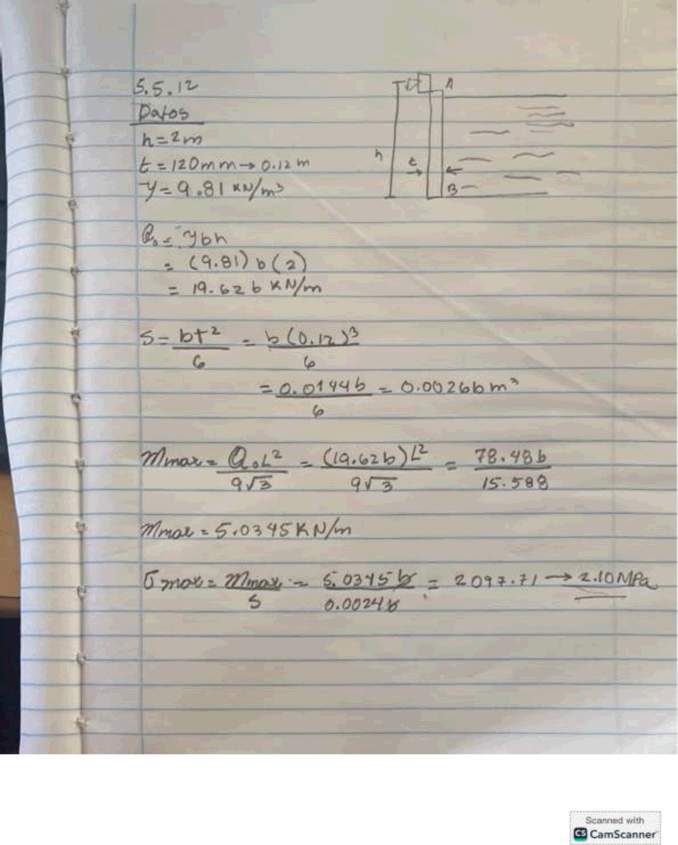 5.5.12
Datos
h = 2m
t = 120mm → 0.12m
γ = 9.81 KN/m³
A
h
t
B
Q₀ = γbh
= (9.81) b (2)
= 19.62 b KN/m
S = bt²/6 = b(0.12)³/6
= 0.0144b/6 = 0.0026b m³
Mmax = Q₀L²/9√3 = (19.62b)L²/9√3 = 78.48b/15.588
Mmax = 5.0345 KN/m
σmax = Mmax/S = 5.0345b/0.0024b = 2097.71 → 2.10 MPa
Scanned with
CS CamScanner